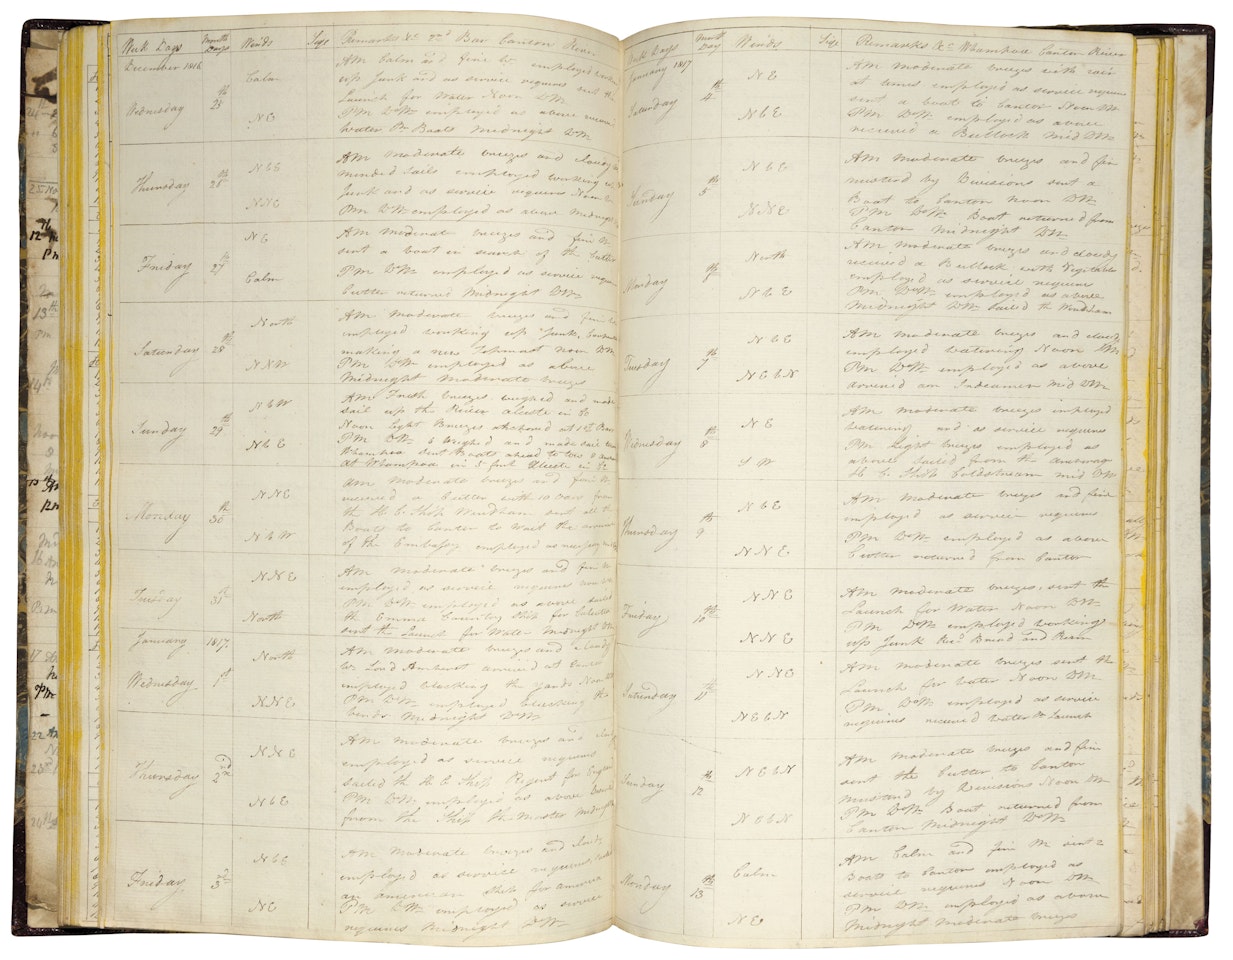 Week Days Month Days Winds Sign Remarks &c 2nd Bar Canton River
December 1816
Wednesday 25th Calm NE
AM Calm and fine employed
up Junk and as service requires sent the
Launch for Water Noon DW
PM DW employed as above
water Pr Boats Midnight DW
Thursday 26th NbE NNE
AM moderate breezes and cloudy
employed working up
Junk and as service requires Noon
PM DW employed as above Midnight
Friday 27th NE Calm
AM moderate breezes and fine
sent a boat in search of the Cutter
PM DW employed as service requires
Cutter returned Midnight DW
Saturday 28th North NNW
AM moderate breezes and fine
employed working up Junk,
making a new Topmast Noon DW
PM DW employed as above
Midnight moderate breezes
Sunday 29th NbW NbE
AM Fresh breezes weighed and made
sail up the River Alceste in Co
Noon light Breezes anchored at
PM DW weighed and made sail
Whampoa sent Boats ahead to tow
at Whampoa in 5 fms Alceste in Co
Monday 30th NNE NbW
AM moderate breezes and fine
received a Cutter with 10 oars from
the H C Ship Windham sent all the
Boats to Canton to wait the arrival
of the Embassy employed as necessary
Tuesday 31st NNE North
AM moderate breezes and fine
employed as service requires
PM DW employed as above sailed
the Emma Country Ship for Calcutta
sent the Launch for Water Midnight DW
January 1817.
Wednesday 1st North NNE
AM moderate breezes and cloudy
Lord Amherst arrived at Canton
employed blacking the yards Noon
PM DW employed blacking the
bends Midnight DW
Thursday 2nd NNE NbE
AM moderate breezes and cloudy
employed as service requires
sailed the H C Ship Regent for England
PM DW employed as above
from the Ship the Master Midnight
Friday 3rd NbE NE
AM moderate breezes and cloudy
employed as service requires sailed
an american Ship for America
PM DW employed as service
requires Midnight DW
Week Days Month Day Winds Sig Remarks &c Whampoa Canton River
January 1817
Saturday 4th NE NbE
AM moderate breezes with rain
at times employed as service requires
sent a boat to Canton Noon DW
PM DW employed as above
received a Bullock Mid DW
Sunday 5th NbE NNE
AM moderate breezes and fine
mustered by Divisions sent a
Boat to Canton Noon DW
PM DW Boat returned from
Canton Midnight DW
Monday 6th North NbE
AM moderate breezes and cloudy
received a Bullock with Vegetables
employed as service requires
PM DW employed as above
Midnight DW sailed the Windham
Tuesday 7th NbE NEbN
AM moderate breezes and cloudy
employed watering Noon DW
PM DW employed as above
arrived an Indiaman Mid DW
Wednesday 8th NE SW
AM moderate breezes employed
watering and as service requires
PM light breezes employed as
above sailed from the anchorage
H C Ship Coldstream mid DW
Thursday 9th NbE NNE
AM moderate breezes and fine
employed as service requires
PM DW employed as above
Cutter returned from Canton
Friday 10th NNE NNE
AM moderate breezes, sent the
Launch for Water Noon DW
PM DW employed working
up Junk Recd Bread and Rum
Saturday 11th NNE NEbN
AM moderate breezes sent the
Launch for water Noon DW
PM DW employed as service
requires received water Pr Launch
Sunday 12th NEbN NEbN
AM moderate breezes and fine
sent the Cutter to Canton
mustered by Divisions Noon DW
PM DW Boat returned from
Canton Midnight DW
Monday 13th Calm NE
AM Calm and fine sent 2
Boats to Canton employed as
service requires Noon DW
PM DW employed as above
Midnight moderate breezes